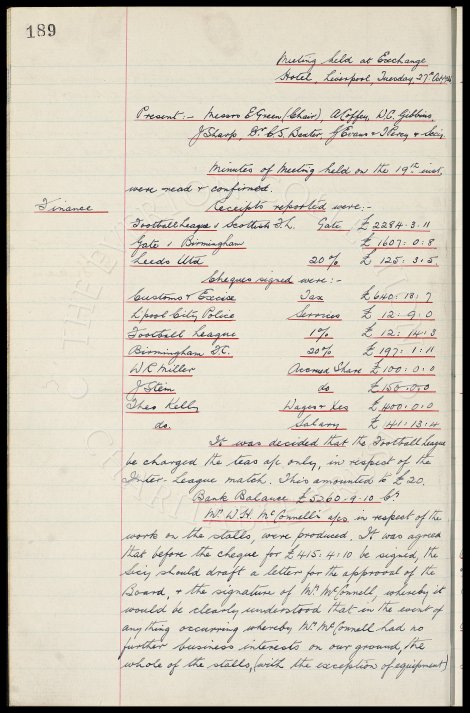 189
Meeting held at Exchange
Hotel, Liverpool, Tuesday, 27th Oct.
Present:- Messrs E Green (Chair), A Coffey, W.C. Gibbins,
J Sharp, Dr. C.S. Baxter, J Evans & T Percy & Secy.
Minutes of Meeting held on the 19th inst,
were read & confirmed.
Finance
Receipts reported were:-
Football League v Scottish F.L. Gate £ 2284:3:11
Gate v Birmingham £ 1607:0:8
Leeds Utd 20% £ 125:3:5.
Cheques signed were:-
Customs & Excise Tax £640:18:7
L'pool City Police Services £ 12:9:0
Football League 1% £ 12:14:3
Birmingham F.C. 20% £ 197:1:11
W R Miller Accrued Share £ 100:0:0
J Stein do £150:0:0
Theo Kelly Wages & £ 400:0:0
do. Salary £ 41:13:4
It was decided that the Football League
be charged the teas a/c only, in respect of the
Inter-League match. This amounted to £20.
Bank Balance £5260.9.10 Cr
Mr. W.H. McConnell's a/cs in respect of the
work on the stalls, were produced. It was agreed
that before the cheque for £415:4:10 be signed, the
Secy should draft a letter for the approval of the
Board, & the signature of Mr. McConnell, whereby it
would be clearly understood that in the event of
anything occurring whereby Mr. McConnell had no
further business interests on our ground, the
whole of the stalls, (with the exception of equipment)